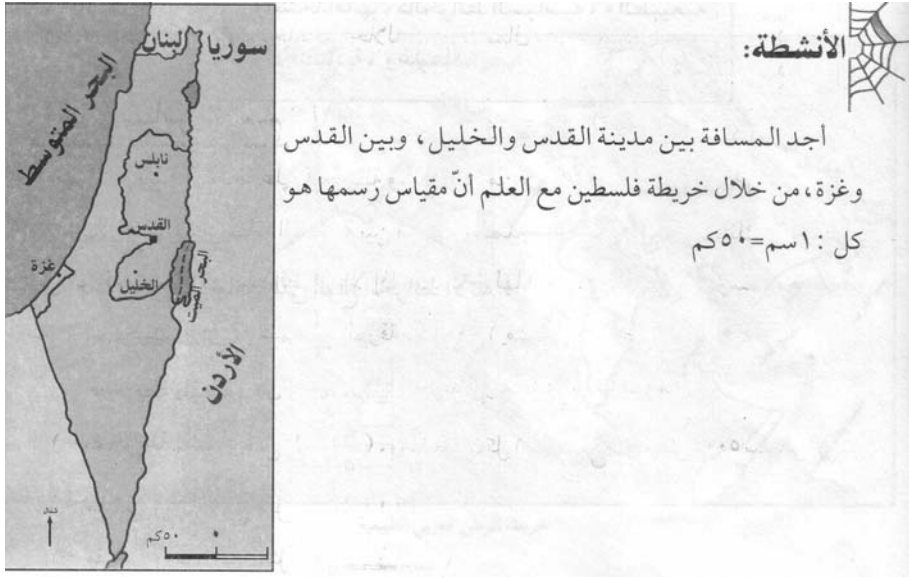 الأنشطة:
أجد المسافة بين مدينة القدس والخليل، وبين القدس
وغزة، من خلال خريطة فلسطين مع العلم أنّ مقياس رسمها هو
كل : ١سم=٥٠كم
لبنان
سوريا
البحر المتوسط
نابلس
القدس
غزة
الخليل
البحر الميت
الأردن
شمال
٥٠كم